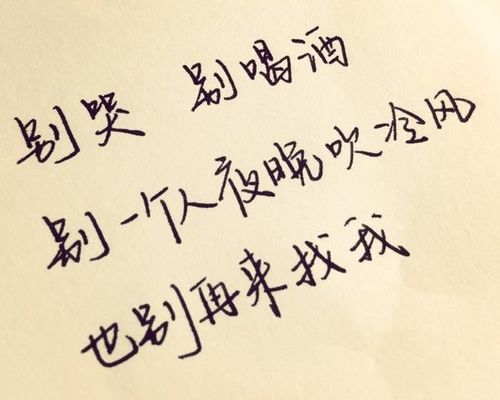 别哭 别喝酒
别一个人夜晚吹冷风
也别再来找我